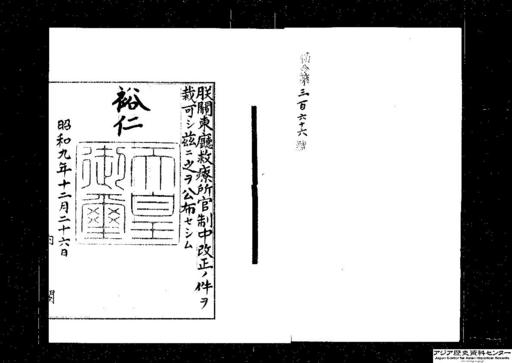 勅令第三百六十六號
朕關東廳救療所官制中改正ノ件ヲ
裁可シ茲ニ之ヲ公布セシム
裕仁
天皇御璽
昭和九年十二月二十六日
内閣
アジア歴史資料センター
Japan Center for Asian Historical Records